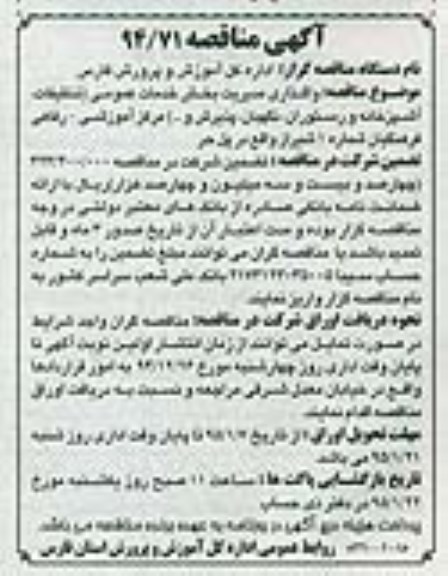 آگهی مناقصه ۹۴/۷۱
نام دستگاه مناقصه گزار: اداره کل آموزش و پرورش فارس
موضوع مناقصه: واگذاری مدیریت بخش خدمات عمومی (تنظیفات
آشپزخانه و رستوران، نگهبان، پذیرش و ..) مرکز آموزشی - رفاهی
فرهنگیان شماره ۱ شیراز واقع در پل حر
تضمین شرکت در مناقصه: تضمین شرکت در مناقصه
(چهارصد و بیست و سه میلیون و چهارصد هزار) ریال با ارائه
ضمانت نامه بانکی صادره از بانک های معتبر دولتی در وجه
مناقصه گزار بوده و مدت اعتبار آن از تاریخ صدور ۳ ماه و قابل
تمدید باشد یا مناقصه گران می توانند مبلغ تضمین را به شماره
حساب سیبا بانک ملی شعب سراسر کشور به
نام مناقصه گزار واریز نمایند.
نحوه دریافت اوراق شرکت در مناقصه: مناقصه گران واجد شرایط
در صورت تمایل می توانند از زمان انتشار اولین نوبت آگهی تا
پایان وقت اداری روز چهارشنبه مورخ به امور قراردادها
واقع در خیابان معدل شرقی مراجعه و نسبت به دریافت اوراق
مناقصه اقدام نمایند.
مهلت تحویل اوراق: از تاریخ ۹۵/۱/۷ تا پایان وقت اداری روز شنبه
۹۵/۱/۲۱ می باشد.
تاریخ بازگشایی پاکت ها: ساعت ۱۱ صبح روز یکشنبه مورخ
۹۵/۱/۲۲ در دفتر ذی حساب
پرداخت هزینه درج آگهی در روزنامه به عهده برنده مناقصه می باشد.
روابط عمومی اداره کل آموزش و پرورش استان فارس